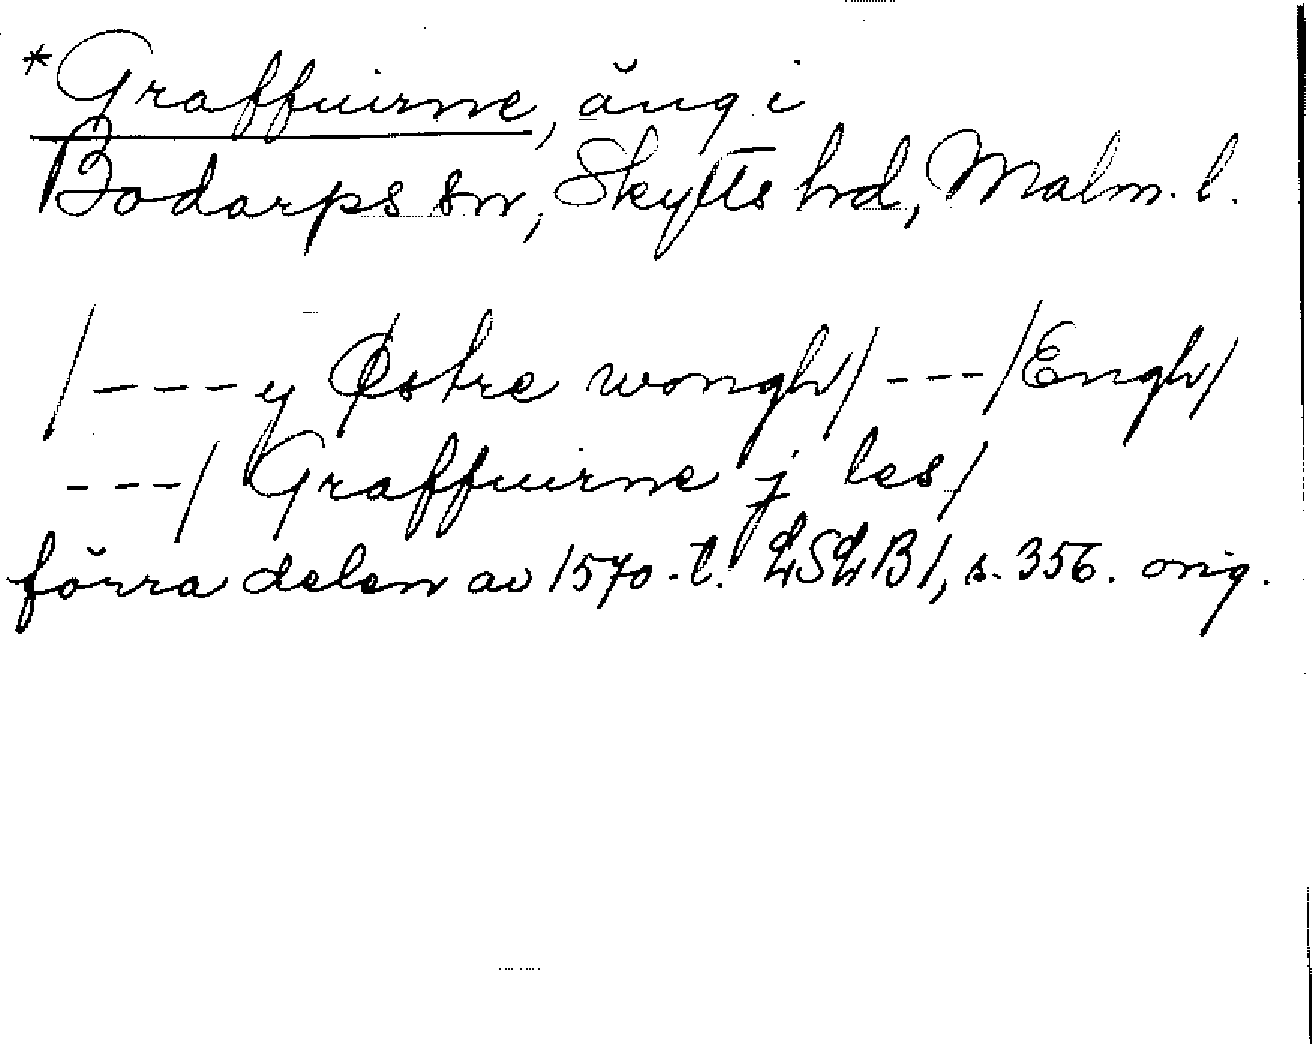 *Graffuirne, äng i
Bodarps sn, Skytts hd, Malm. l.
/---y Østre wongh/ ---/Engh/
---/ Graffuirne j les/
förra delen av 1570-t. LSLB1, s. 356. orig.